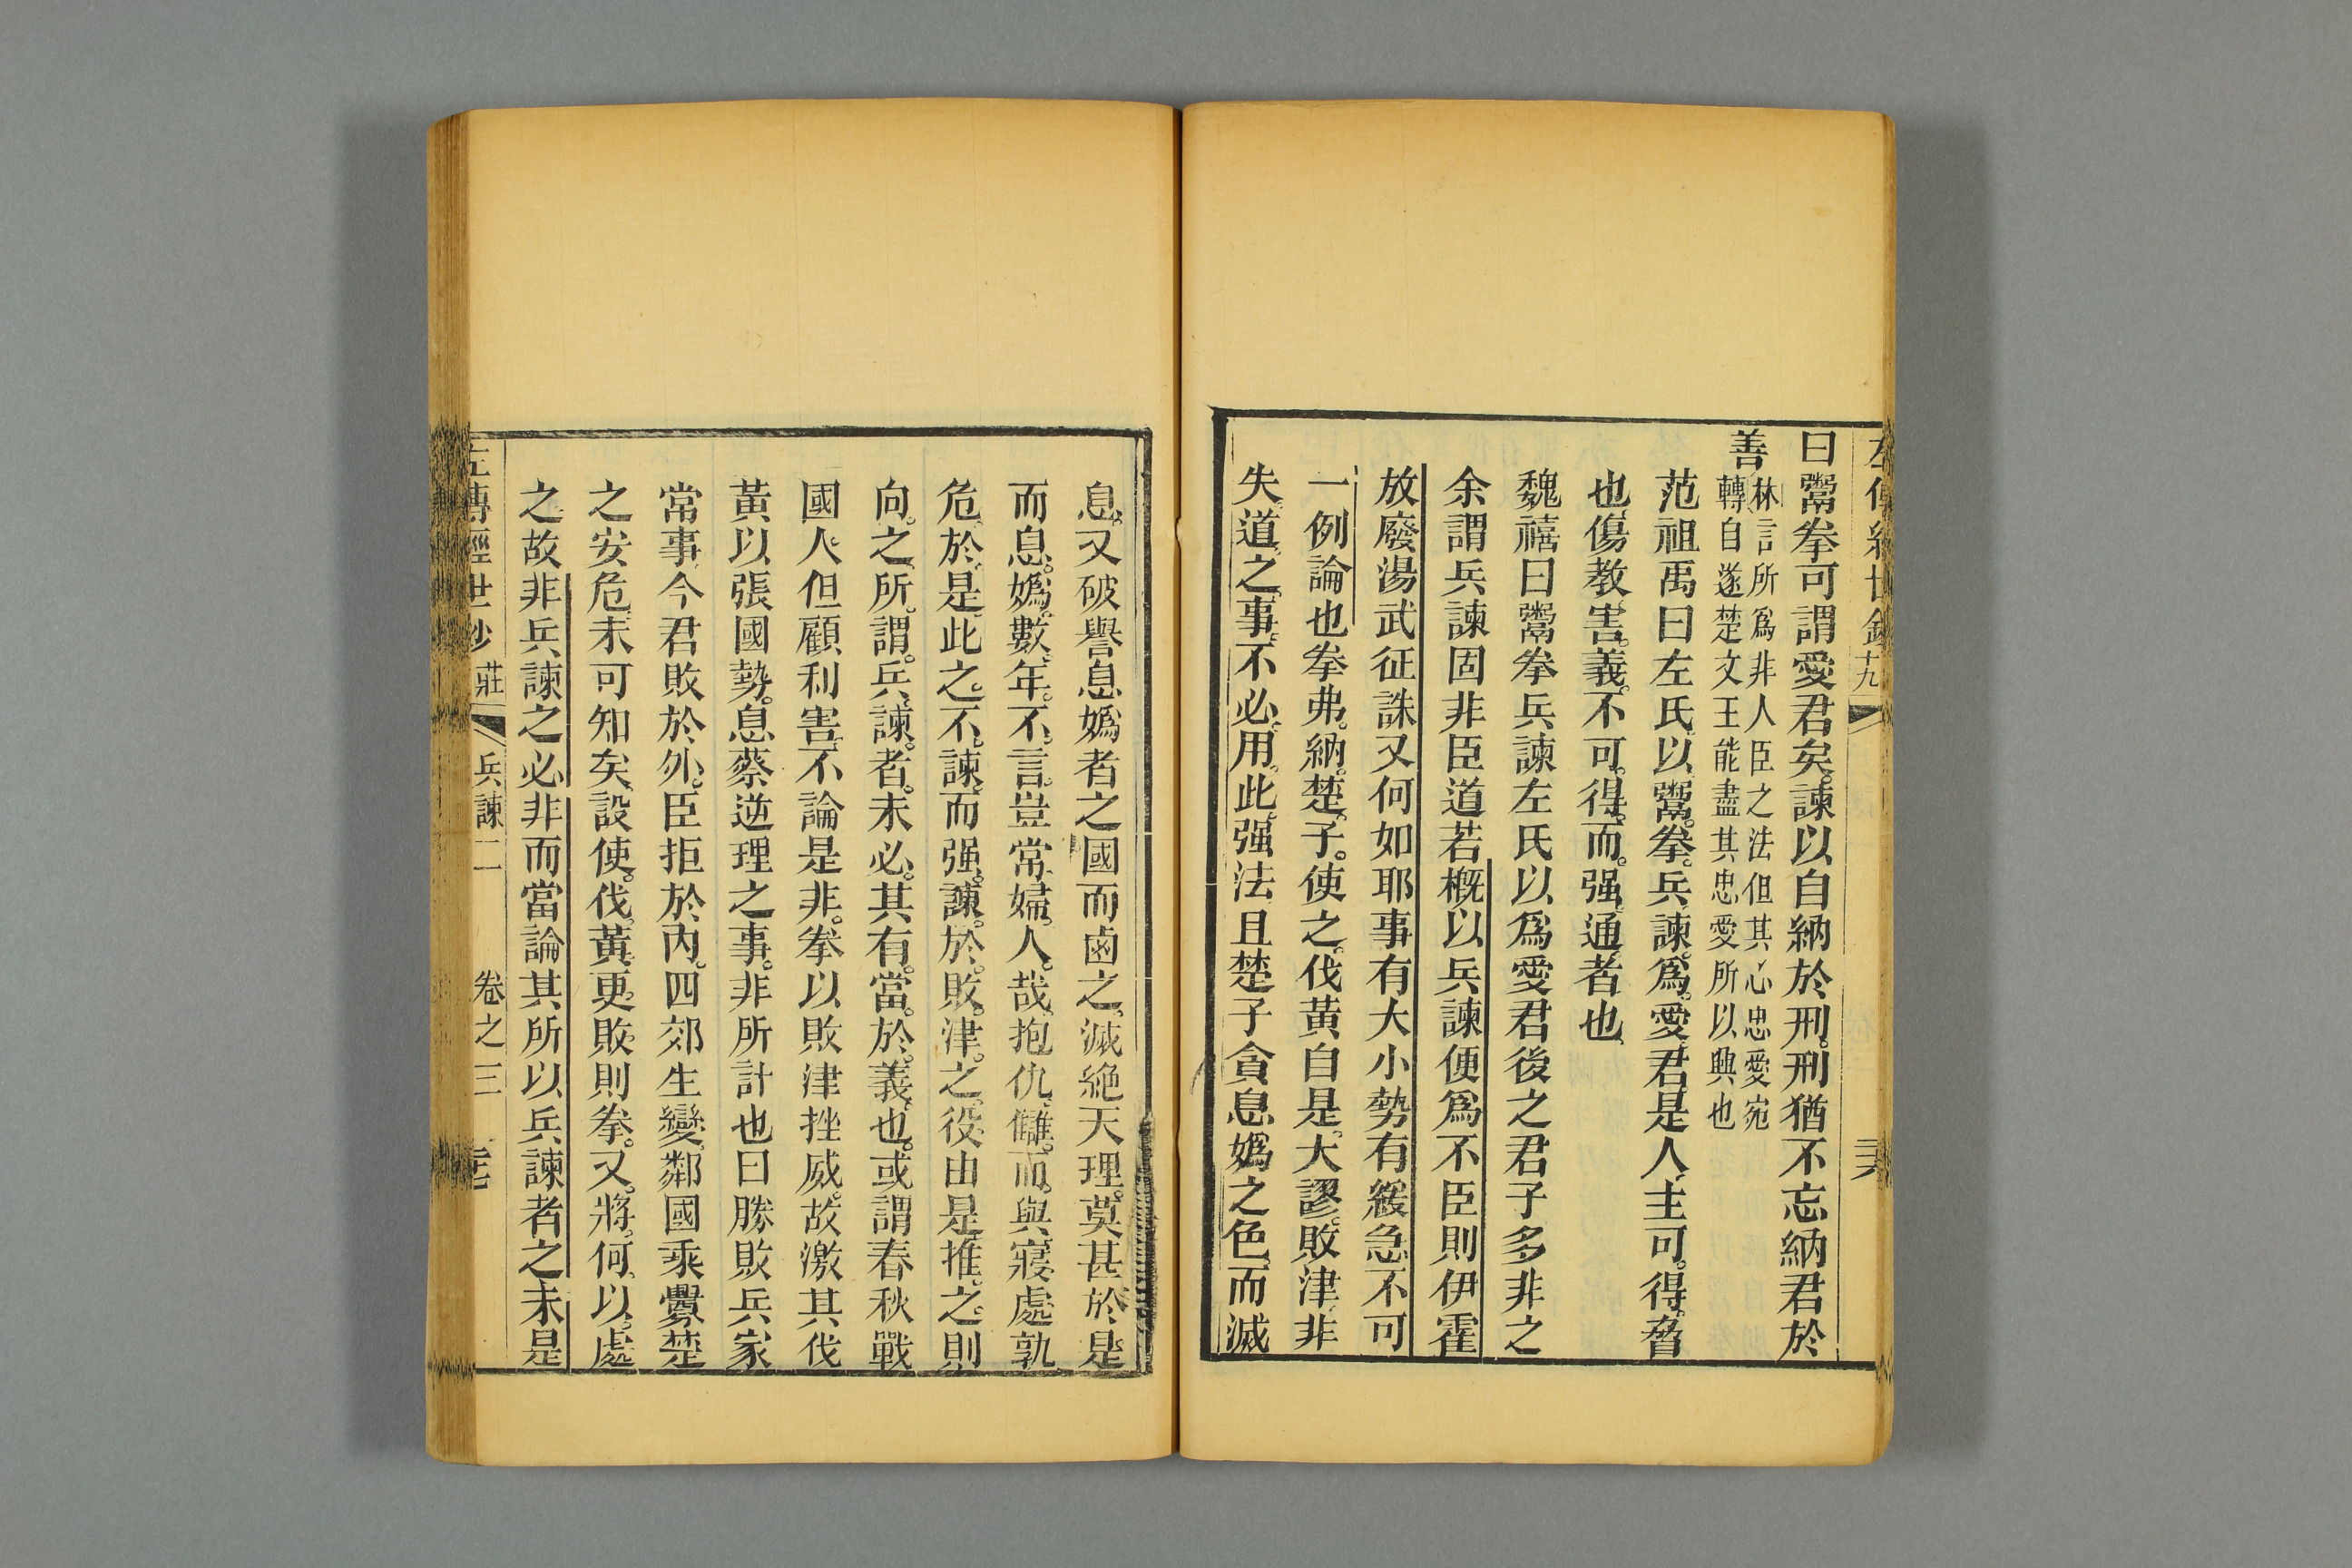 左傳經世鈔
十九
曰鬻拳可謂愛君矣諫以自納於刑刑猶不忘納君於
善
林言所爲非人臣之法但其心忠愛宛
轉自遂楚文王能盡其忠愛所以興也
范祖禹曰左氏以鬻拳兵諫爲愛君是人主可得脅
也傷教害義不可得而强通者也
魏禧曰鬻拳兵諫左氏以爲愛君後之君子多非之
余謂兵諫固非臣道若概以兵諫便爲不臣則伊霍
放廢湯武征誅又何如耶事有大小勢有緩急不可
一例論也拳弗納楚子使之伐黃自是大謬敗津非
失道之事不必用此强法且楚子貪息嬀之色而滅
息又破譽息嬀者之國而鹵之滅絶天理莫甚於是
而息嬀數年不言豈常婦人哉抱仇讎而與寢處孰
危於是此之不諫而强諫於敗津之役由是推之則
向之所謂兵諫者未必其有當於義也或謂春秋戰
國人但顧利害不論是非拳以敗津挫威故激其伐
黃以張國勢息蔡逆理之事非所計也曰勝敗兵家
常事今君敗於外臣拒於內四郊生變鄰國乘釁楚
之安危未可知矣設使伐黃更敗則拳又將何以處
之故非兵諫之必非而當論其所以兵諫者之未是
左傳經世鈔
莊
兵諫二
卷之三